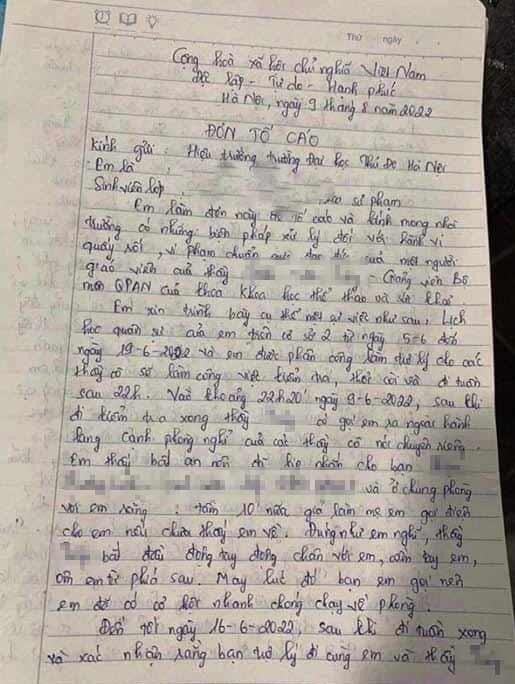 Thứ ngày
Cộng hoà xã hội chủ nghĩa Việt Nam
Độc lập - Tự do - Hạnh phúc
Hà Nội, ngày 9 tháng 8 năm 2022
ĐƠN TỐ CÁO
Kính gửi: Hiệu trưởng trường Đại học Thủ Đô Hà Nội
Em là:
Sinh viên lớp: sư phạm
Em làm đơn này để tố cáo và kính mong nhà
trường có những biện pháp xử lý đối với hành vi
quấy rối, vi phạm chuẩn mực đạo đức của một người
giáo viên của thầy - Giảng viên Bộ
môn QPAN của khoa khoa học thể thao và sức khoẻ.
Em xin trình bày cụ thể nội sự việc như sau, Lịch
học quân sự của em trên cơ sở 2 từ ngày 5-6 đến
ngày 19-6-2022 và em được phân công làm tự lý cho các
thầy có số làm công việc kiểm tra, thổi còi với đi tuần
sau 22h. Vào khoảng 22h20' ngày 9-6-2022, sau khi
đi kiểm tra xong thầy có gọi em ra ngoài hành
lang cạnh phòng nghỉ của các thầy có nói chuyện riêng.
Em thấy bất an nên đã kịp nhắn cho bạn
và ở chung phòng
với em rằng: tầm 10' nữa giả làm mẹ em gọi điện
cho em nếu chưa thấy em về. Đúng như em nghĩ, thầy
bắt đầu động tay động chân với em, cầm tay em,
ôm em từ phía sau. May lúc đó bạn em gọi nên
em đã có cơ hội nhanh chóng chạy về phòng.
Đến tối ngày 16-6-2022, sau khi đi tuần xong
và xác nhận rằng bạn tự lý đi cùng em và thầy